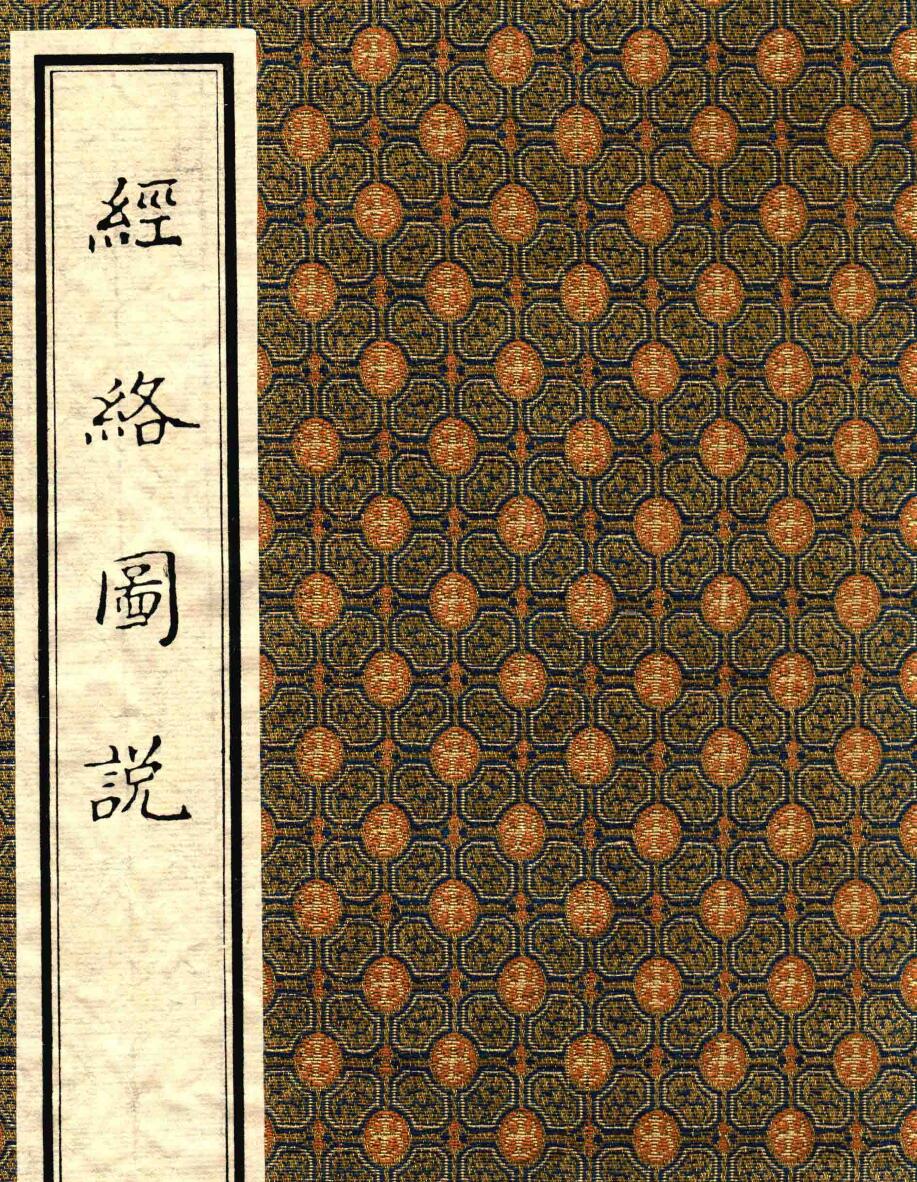 經絡圖說